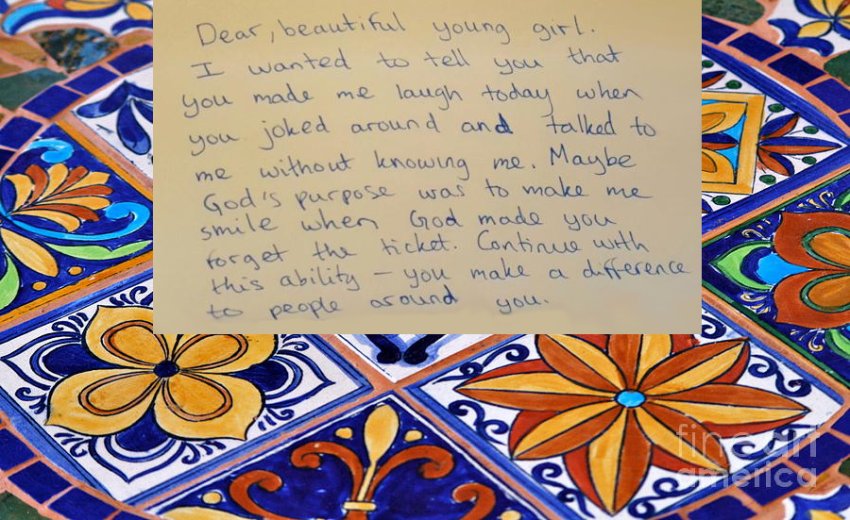 Dear, beautiful young girl.
I wanted to tell you that
you made me laugh today when
you joked around and talked to
me without knowing me. Maybe
God's purpose was to make me
smile when God made you
forget the ticket. Continue with
this ability – you make a difference
to people around you.
fine art
america